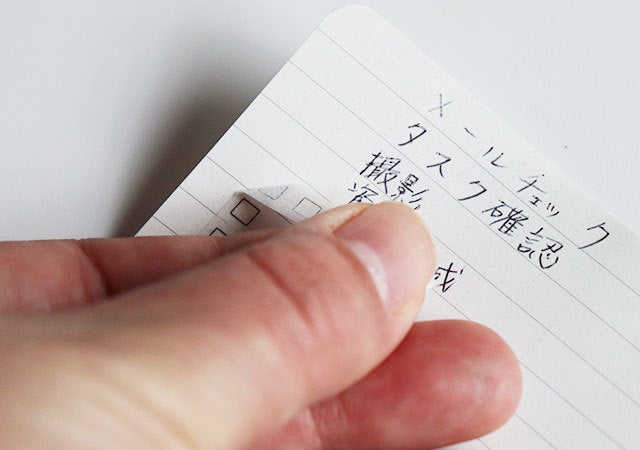 メールチェック
タスク確認
撮影
成